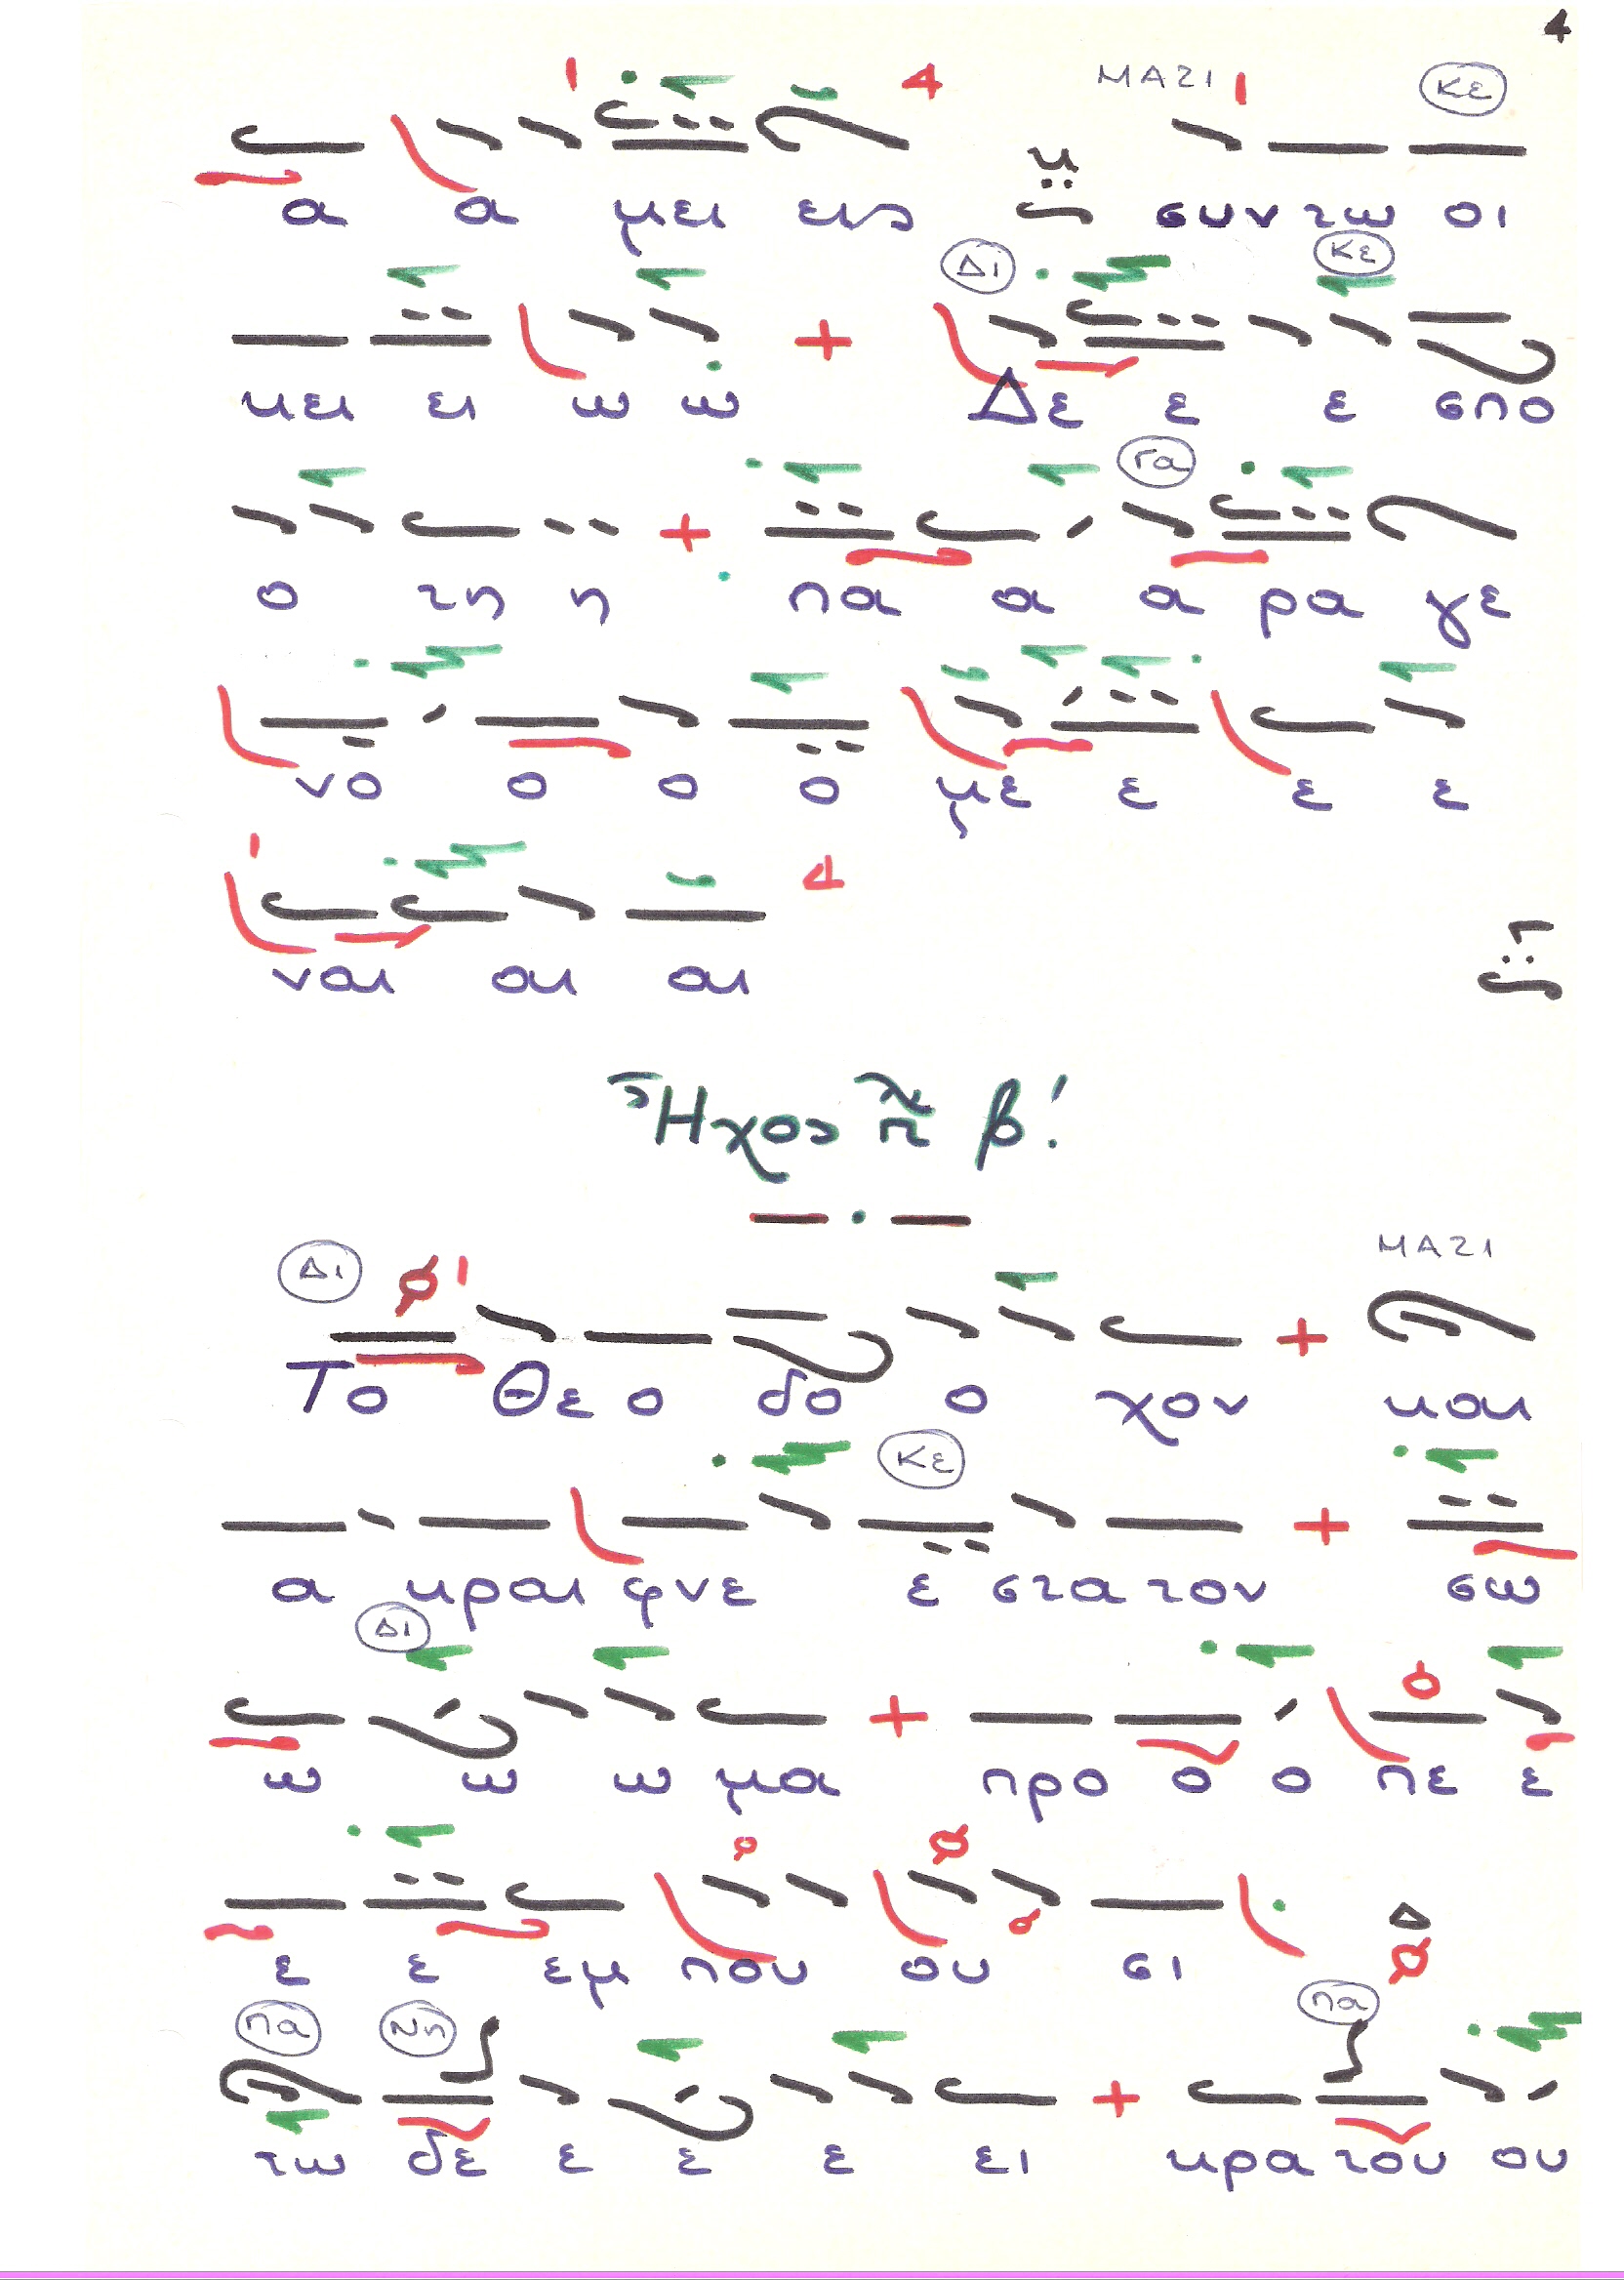 4
ΜΑΖΙ Κε
α α μει εις συν τω οι
Δι Κε
κει ει ω ω Δε ε ε σπο
Γα
ο τη η πα α α ρα γε
νο ο ο ο με ε ε ε
ναι αι αι
Ἦχος πλ β!
Δι ΜΑΖΙ
Το Θε ο δο ο χον και
Κε
α κραι φνε ε στα τον σω
Δι
ω ω ω μα προ ο ο πε ε
ε ε εμ που ου σι
Πα Νη Πα
τω δε ε ε ε ει κρα του ου